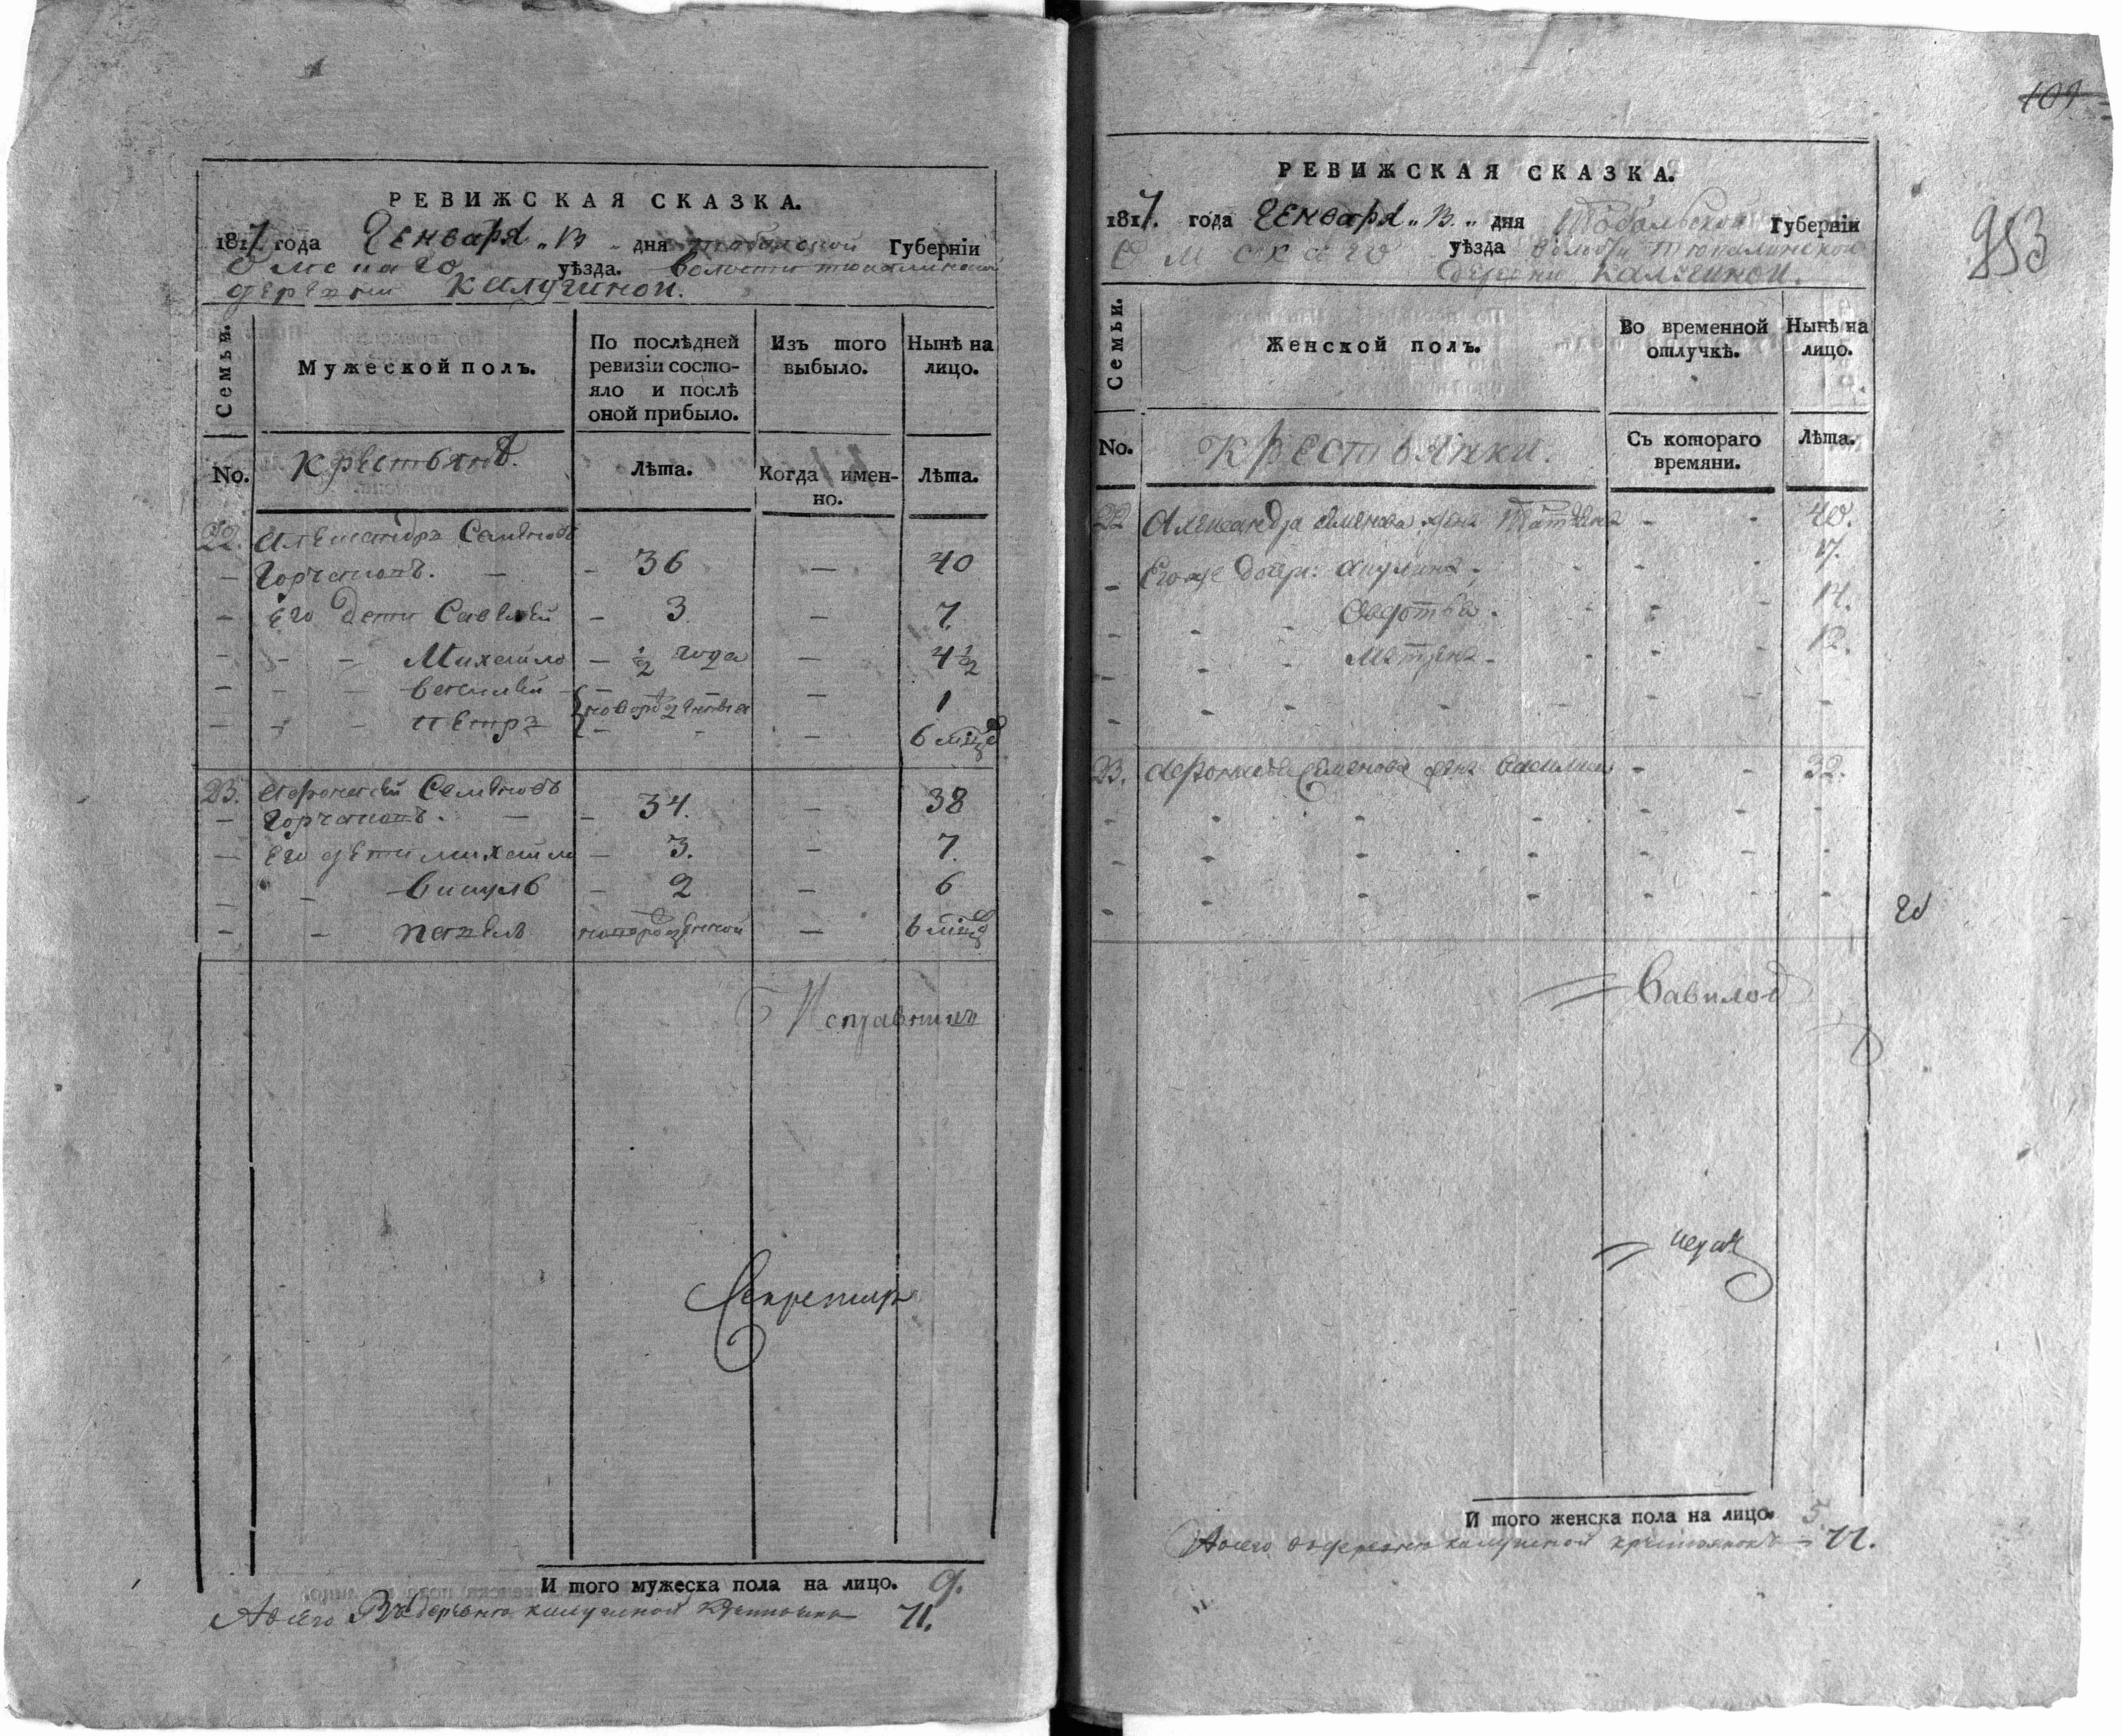 РЕВИЖСКАЯ СКАЗКА.
1817 года Генваря „ 13 „ дня Тобольской Губерніи
Омскаго уѣзда. волости тюкалинской
деревни Калугиной.
Семьи.
Мужеской полъ.
По послѣдней ревизіи состо-
яло и послѣ
оной прибыло.
Изъ того
выбыло.
Нынѣ на
лицо.
No.
Крестьянъ.
Лѣта.
Когда имен-
но.
Лѣта.
22. Александръ Семеновъ
Горчаковъ. 36 — 40
Его дети Савелей 3 — 7.
Михайло ½ года — 4½
василей — 1
петръ новорожденныя — 6 мцовъ
23. Афонасей Семеновъ
Горчаковъ. 34. — 38
Его дети михайло 3. — 7.
викулъ 2 — 6
павелъ новорожденной — 6 мцовъ
Исправникъ
Секретарь
И того мужеска пола на лицо. 9.
А всего въ деревне калугиной крестьянъ 71.
109
953
РЕВИЖСКАЯ СКАЗКА.
1817. года Генваря „ 13. „ дня Тобольской Губерніи
Омскаго уѣзда волости тюкалинской
деревни Калугиной.
Семьи.
Женской полъ.
Во временной
отлучкѣ.
Нынѣ на
лицо.
No.
Крестьянки.
Съ котораго
времяни.
Лѣта.
22 Александра Семенова жена Татьяна 40.
Его же дочери: акулина 17.
Овдотья 14.
Матрена 12.
23. Афонасья Семенова жена Василиса 32.
Вавилов
И того женска пола на лицо. 5.
А всего въ деревне калугиной крестьянокъ 77.